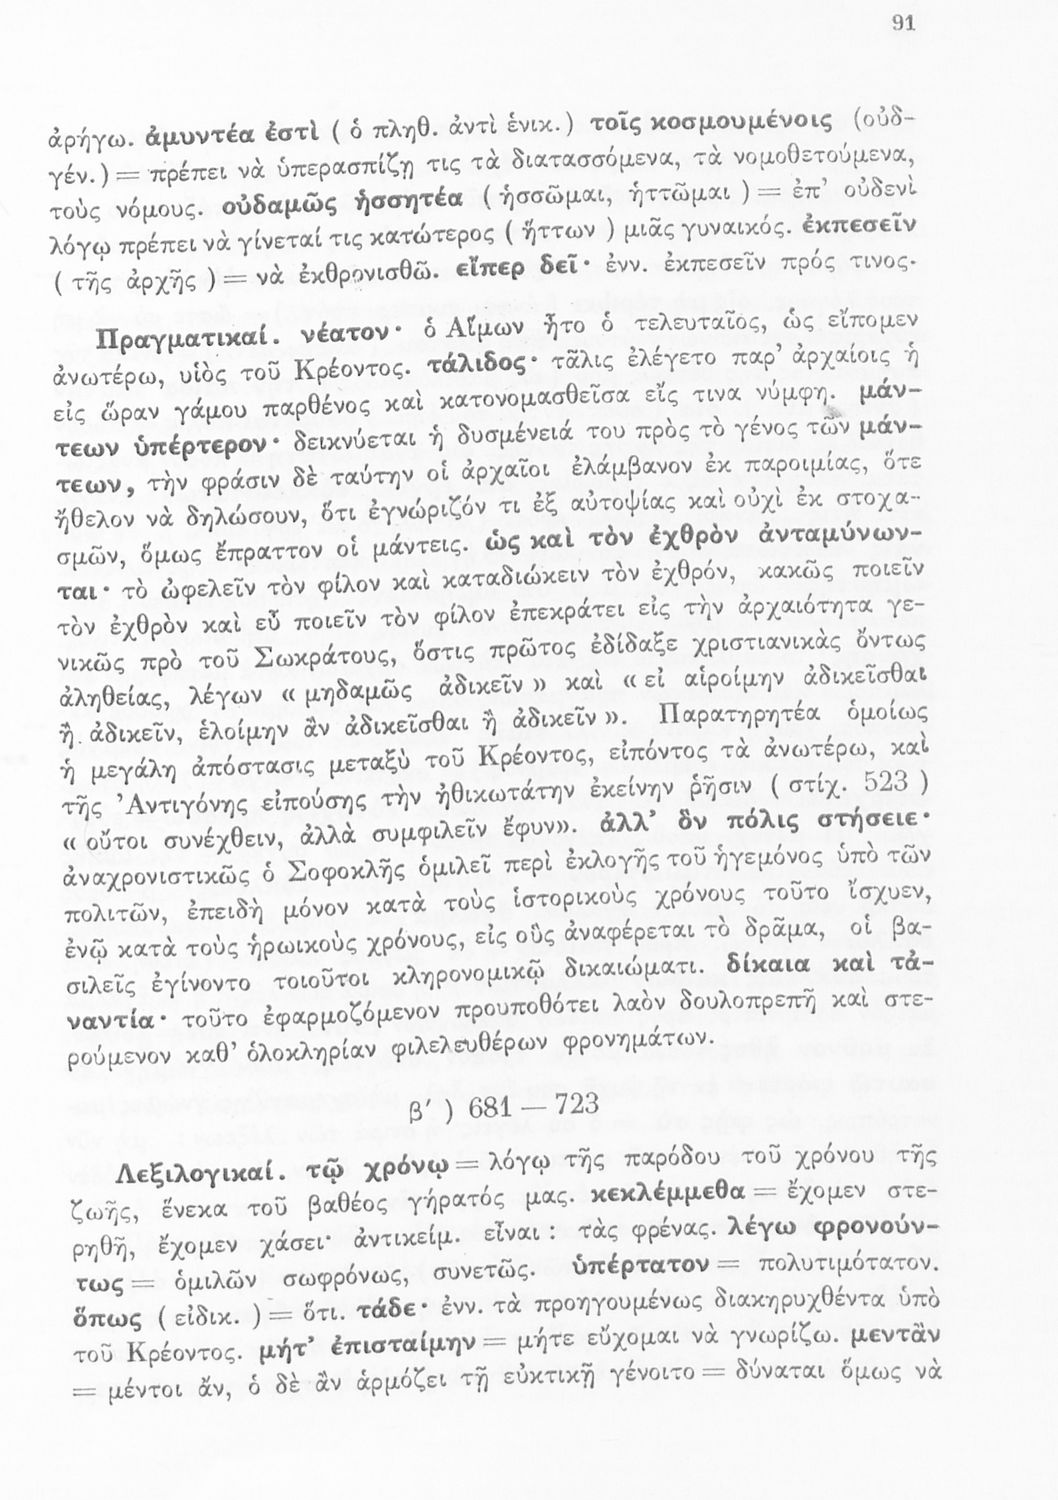 91
ἀρήγω. ἀμυντέα ἐστὶ ( ὁ πληθ. ἀντὶ ἑνικ.) τοῖς κοσμουμένοις (οὐδ-
γέν.) = πρέπει νὰ ὑπερασπίζῃ τις τὰ διατασσόμενα, τὰ νομοθετούμενα,
τοὺς νόμους. οὐδαμῶς ἡσσητέα ( ἡσσῶμαι, ἡττῶμαι ) = ἐπ’ οὐδενὶ
λόγῳ πρέπει νὰ γίνεταί τις κατώτερος ( ἥττων ) μιᾶς γυναικός. ἐκπεσεῖν
( τῆς ἀρχῆς ) = νὰ ἐκθρονισθῶ. εἴπερ δεῖ· ἐνν. ἐκπεσεῖν πρός τινος.
Πραγματικαί. νέατον· ὁ Αἵμων ἦτο ὁ τελευταῖος, ὡς εἴπομεν
ἀνωτέρω, υἱὸς τοῦ Κρέοντος. τάλιδος· τᾶλις ἐλέγετο παρ’ ἀρχαίοις ἡ
εἰς ὥραν γάμου παρθένος καὶ κατονομασθεῖσα εἴς τινα νύμφη. μάν-
τεων ὑπέρτερον· δεικνύεται ἡ δυσμένειά του πρὸς τὸ γένος τῶν μάν-
τεων, τὴν φράσιν δὲ ταύτην οἱ ἀρχαῖοι ἐλάμβανον ἐκ παροιμίας, ὅτε
ἤθελον νὰ δηλώσουν, ὅτι ἐγνώριζόν τι ἐξ αὐτοψίας καὶ οὐχὶ ἐκ στοχα-
σμῶν, ὅμως ἔπραττον οἱ μάντεις. ὡς καὶ τὸν ἐχθρὸν ἀνταμύνων-
ται· τὸ ὠφελεῖν τὸν φίλον καὶ καταδιώκειν τὸν ἐχθρόν, κακῶς ποιεῖν
τὸν ἐχθρὸν καὶ εὖ ποιεῖν τὸν φίλον ἐπεκράτει εἰς τὴν ἀρχαιότητα γε-
νικῶς πρὸ τοῦ Σωκράτους, ὅστις πρῶτος ἐδίδαξε χριστιανικὰς ὄντως
ἀληθείας, λέγων « μηδαμῶς ἀδικεῖν » καὶ « εἰ αἱροίμην ἀδικεῖσθαι
ἢ ἀδικεῖν, ἑλοίμην ἂν ἀδικεῖσθαι ἢ ἀδικεῖν ». Παρατηρητέα ὁμοίως
ἡ μεγάλη ἀπόστασις μεταξὺ τοῦ Κρέοντος, εἰπόντος τὰ ἀνωτέρω, καὶ
τῆς Ἀντιγόνης εἰπούσης τὴν ἠθικωτάτην ἐκείνην ῥῆσιν ( στίχ. 523 )
« οὔτοι συνέχθειν, ἀλλὰ συμφιλεῖν ἔφυν». ἀλλ’ ὃν πόλις στήσειε·
ἀναχρονιστικῶς ὁ Σοφοκλῆς ὁμιλεῖ περὶ ἐκλογῆς τοῦ ἡγεμόνος ὑπὸ τῶν
πολιτῶν, ἐπειδὴ μόνον κατὰ τοὺς ἱστορικοὺς χρόνους τοῦτο ἴσχυεν,
ἐνῷ κατὰ τοὺς ἡρωικοὺς χρόνους, εἰς οὓς ἀναφέρεται τὸ δρᾶμα, οἱ βα-
σιλεῖς ἐγίνοντο τοιοῦτοι κληρονομικῷ δικαιώματι. δίκαια καὶ τἀ-
ναντία· τοῦτο ἐφαρμοζόμενον προυποθότει λαὸν δουλοπρεπῆ καὶ στε-
ρούμενον καθ’ ὁλοκληρίαν φιλελευθέρων φρονημάτων.
β′ ) 681 — 723
Λεξιλογικαί. τῷ χρόνῳ = λόγῳ τῆς παρόδου τοῦ χρόνου τῆς
ζωῆς, ἕνεκα τοῦ βαθέος γήρατός μας. κεκλέμμεθα = ἔχομεν στε-
ρηθῆ, ἔχομεν χάσει· ἀντικείμ. εἶναι : τὰς φρένας. λέγω φρονούν-
τως = ὁμιλῶν σωφρόνως, συνετῶς. ὑπέρτατον = πολυτιμότατον.
ὅπως ( εἰδικ. ) = ὅτι. τάδε· ἐνν. τὰ προηγουμένως διακηρυχθέντα ὑπὸ
τοῦ Κρέοντος. μήτ’ ἐπισταίμην = μήτε εὔχομαι νὰ γνωρίζω. μεντἂν
= μέντοι ἄν, ὁ δὲ ἂν ἁρμόζει τῇ εὐκτικῇ γένοιτο = δύναται ὅμως νὰ